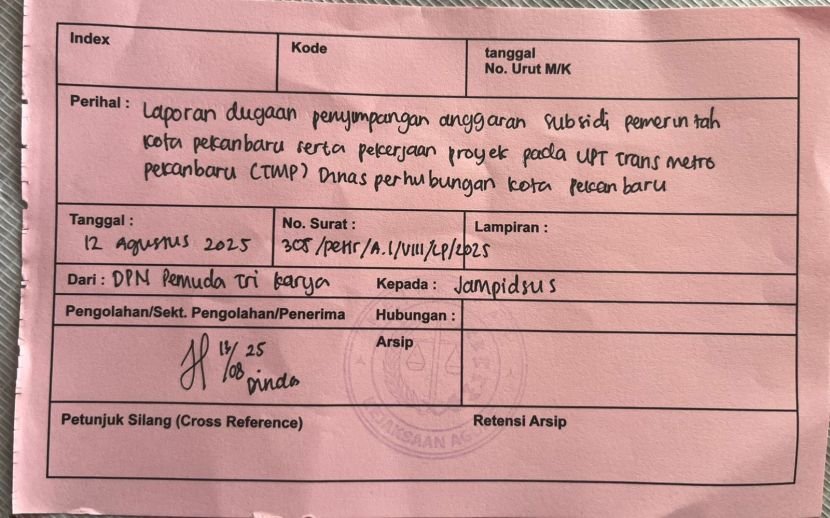 Index
Kode
tanggal
No. Urut M/K
Perihal : Laporan dugaan penyimpangan anggaran subsidi pemerintah
kota pekanbaru serta pekerjaan proyek pada UPT trans metro
pekanbaru (TMP) Dinas perhubungan kota pekanbaru
Tanggal :
12 Agustus 2025
No. Surat :
305/petir/A.1/VIII/LP/2025
Lampiran :
Dari : DPN Pemuda Tri karya
Kepada : Jampidsus
Pengolahan/Sekt. Pengolahan/Penerima
Hubungan :
13/08 25
Dinda
Arsip
KEJAKSAAN AGUNG
Petunjuk Silang (Cross Reference)
Retensi Arsip